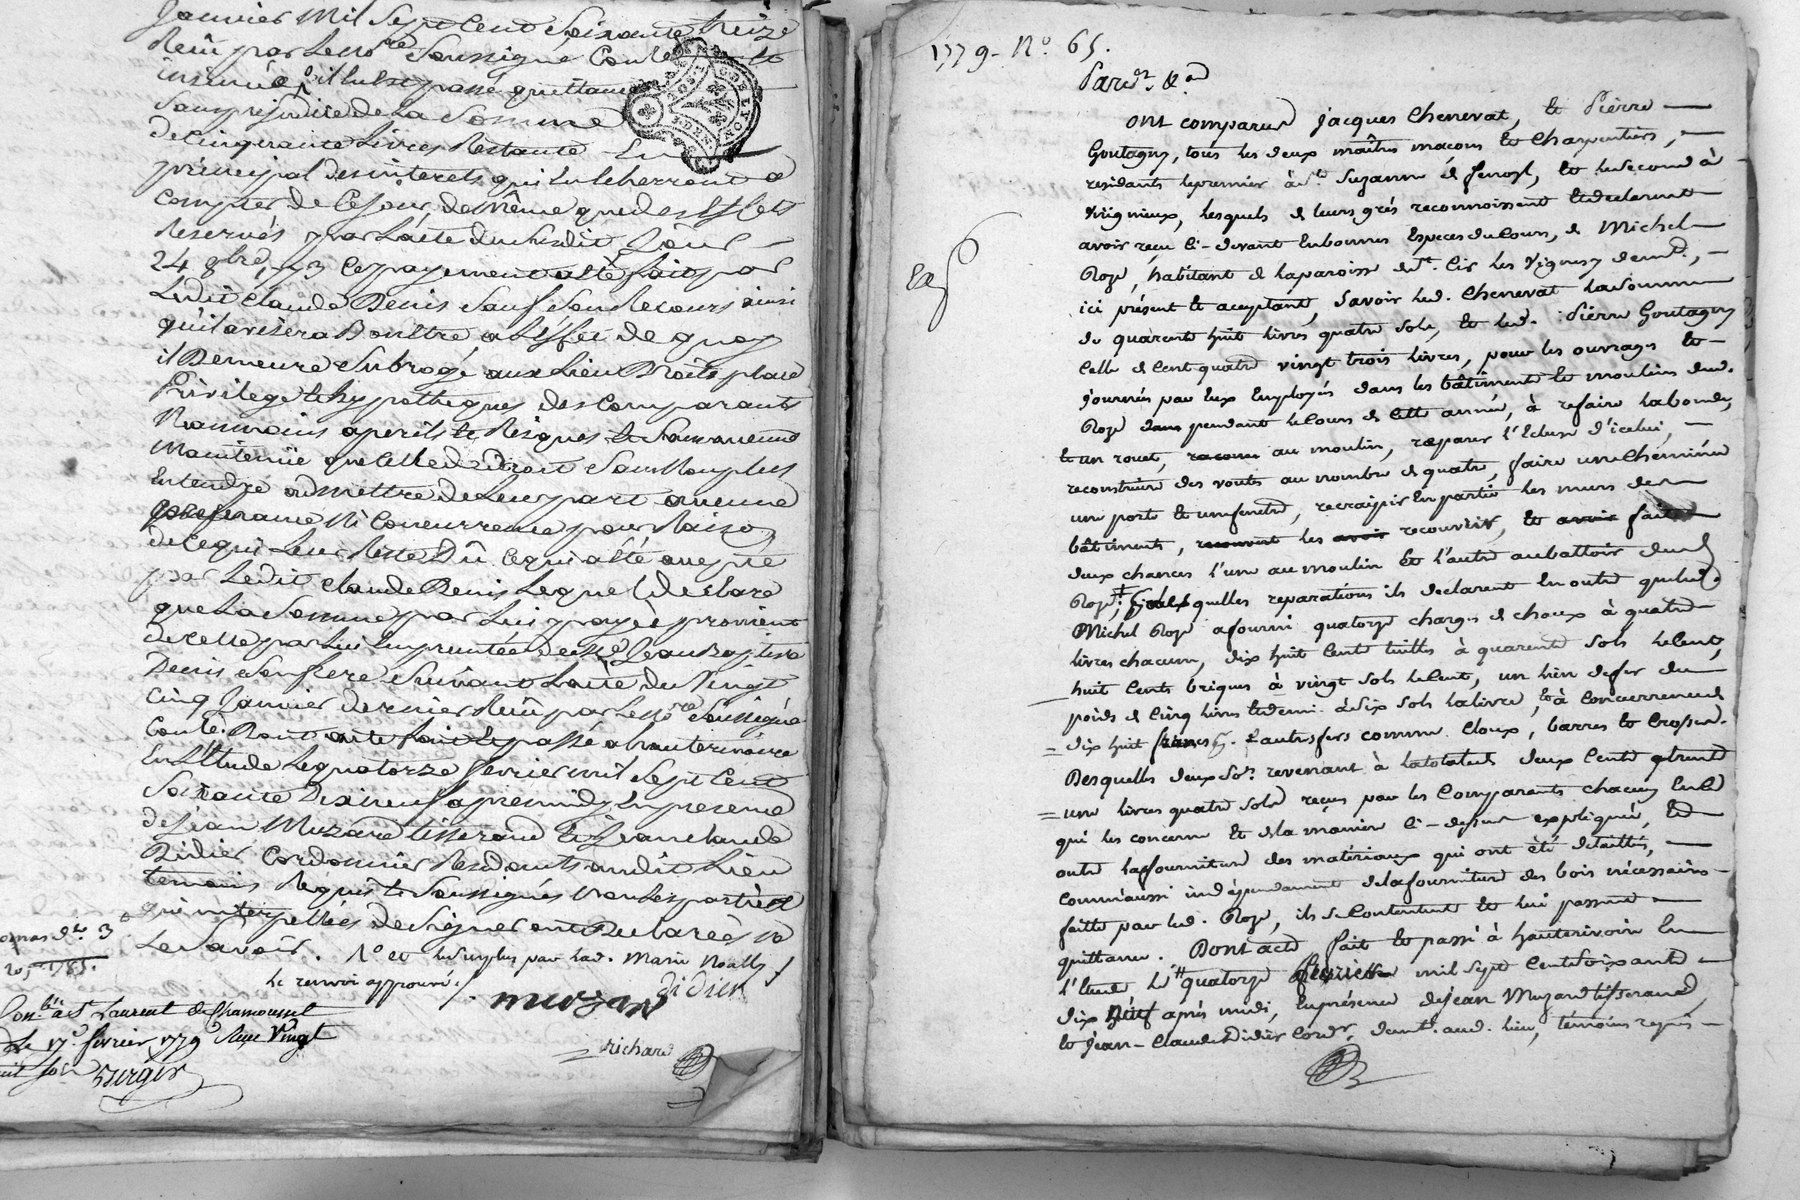 Janvier Mil Sept Cent Soixante treize
Reçu par le no.re Soussigné Controllé et
insinué, il lui est passé quittance
Sans prejudice de La Somme
de Cinquante Livres Restante En
principal des interets qui En lcherront a
Compter de Ce Jour, de Même que des Effets
Reservés par L'acte du Susdit Jour
24 8bre 73 Ce payement a été fait par
Ledit Claude Denis Sauf Son Recours ainsi
qu'il avisera Bon Etre a L'Effet de quoy
il Demeure Subrogé aux Lieu Droits place
Privilege et hypotheques des Comparants
Neanmoins a perils et Risques et Sans aucune
Maintenüe que Celle de Droit Sans Non plus
Entendre admettre de Leur part aucune
preferance Ni Concurrence pour Raison
de Ce qui Leur Reste Dû Ce qui a été accepté
par Ledit Claude Denis Lequel declare
que La Somme par Lui payée provient
de celle par Lui Empruntée de Me Jean Baptiste
Denis Son frere Suivant L'acte du Vingt
Cinq Janvier dernier Reçu par Le No.re Soussigné
Contlé. Dont acte fait et passé a hauterivoire
En L'Etude Le quatorze fevrier mil Sept Cent
Soixante Dix neuf apres midy En presence
de Jean Muzard tisserand Et Jean claude
Didier Cordonnier Residants audit Lieu
temoins Requis et Soussignés Non Les parties
qui interpellées de Signer ont Declarées ne
Le Savoir.
Le renvoi approuvé
muzard
didier
richard
Con.lé à St Laurent de Chamousset
Le 17e. fevrier 1779 Reçu Vingt
huit Sols Berger
1779 - No. 65.
Pard.t &.a
ont comparus Jacques Chenevat, et Pierre
Goutagny, tous les deux maîtres maçons et Charpentiers,
residants le premier à Ste. Suzanne et fenoyl, et le second à
Virignieux, lesquels de leurs grés reconnoissent et declarent
avoir reçu ci-devant En bonnes Especes du Cours, de Michel
Roze, habitant de la paroisse de St. Cir les Vignes
ici présent et acceptant, savoir led. Chenevat la somme
de quarente huit livres quatre sols, et led. Pierre Goutagny
celle de Cent quatre vingt trois livres, pour les ouvrages et
journées par Eux Employés dans les bâtiments et moulins dud.
Roze pendant le Cours de Cette année, à refaire la bonde,
et un rouet, au moulin, réparer l'Ecluse d'icelui,
reconstruire des voutes au nombre de quatre, faire une Cheminée
une porte et une fenetre, recraipir En partie les murs des
bâtiments, les recouvrir, et fait
deux chances l'une au moulin et l'autre au battoir dud.
Roze, quelles reparations ils declarent En outre que led.
Michel Roze a fourni quatorze charges de chaux à quatre
livres chacune, dix huit Cents tuilles à quarente sols le Cent,
huit Cents briques à vingt sols le Cent, un lien de fer du
poids de Cinq livres et demi à Six sols la livre, et à Concurrence de
dix huit francs autres fers comme Cloux, barres et Crosses.
Desquelles deux So.es revenant à la totale de deux Cents trente
une livres quatre sols reçues par les Comparants chacun En ce
qui les concerne et de la maniere ci-dessus expliquée, Et
outre la fourniture des matériaux qui ont été detaillés,
comm'aussi indépendament de la fourniture des bois nécessaires
faitte par led. Roze, ils se Contentent et lui passent
quittance. Dont acte fait et passé à hauterivoire En
l'Etude Le quatorze fevrier mil sept Cent Soixante
dix Neuf après midi, En présence de Jean Muzard tisserand,
et Jean-Claude Didier Cord.r, aud. lieu, témoins requis